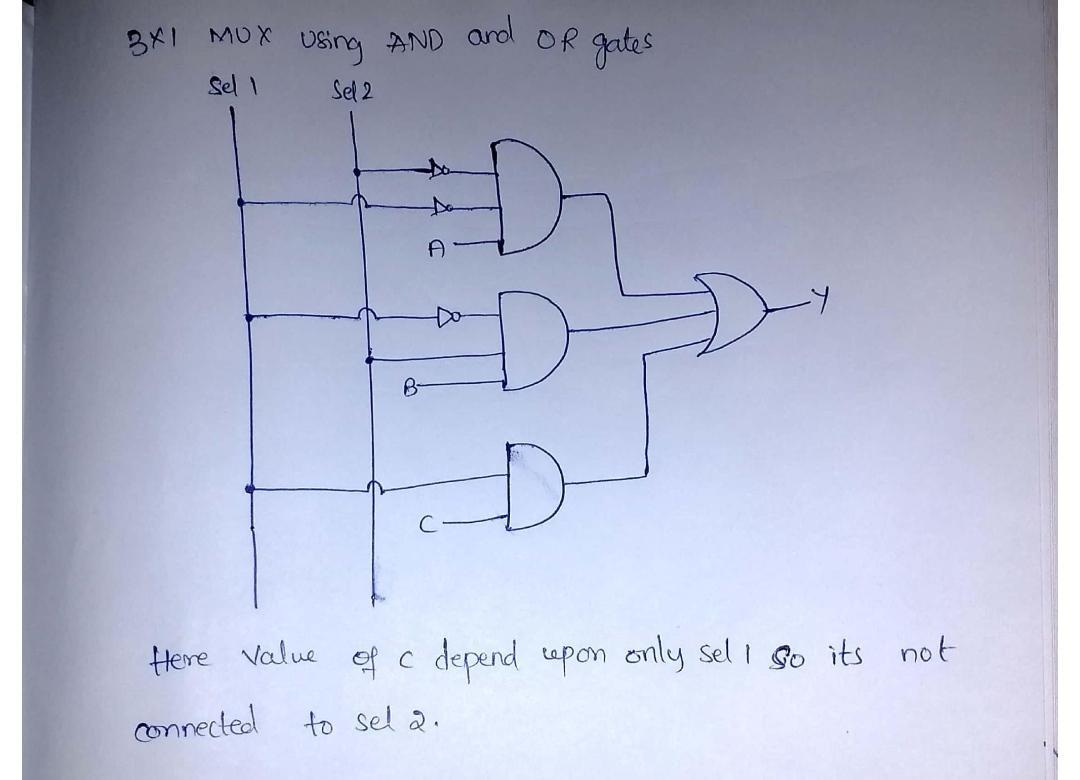 3x1 MUX Using AND and OR gates
Sel 1 Sel 2
A
B
C
Y
Here Value of c depend upon only sel 1 So its not
connected to sel 2.